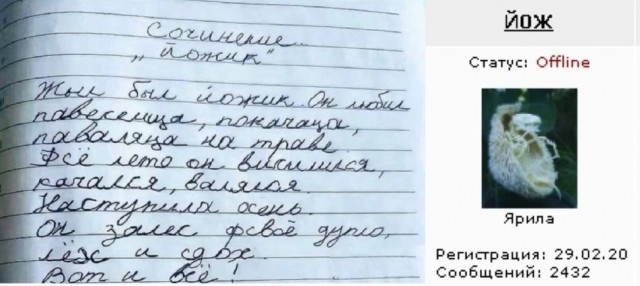 Сочинение..
„Йожик"
Жыл был йожик. Он любил
павеселица, покачаца,
паваляца на траве.
Фсё лето он висилился,
качался, валялся.
Наступила осень.
Он залес фсвоё дупло,
лёж и сдох.
Вот и всё!
йож
Статус: Offline
Ярила
Регистрация: 29.02.20
Сообщений: 2432